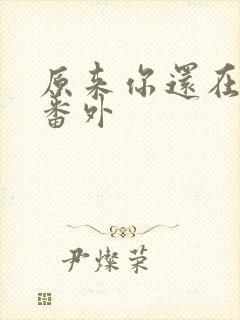 原来你還在
番外
尹燦荣